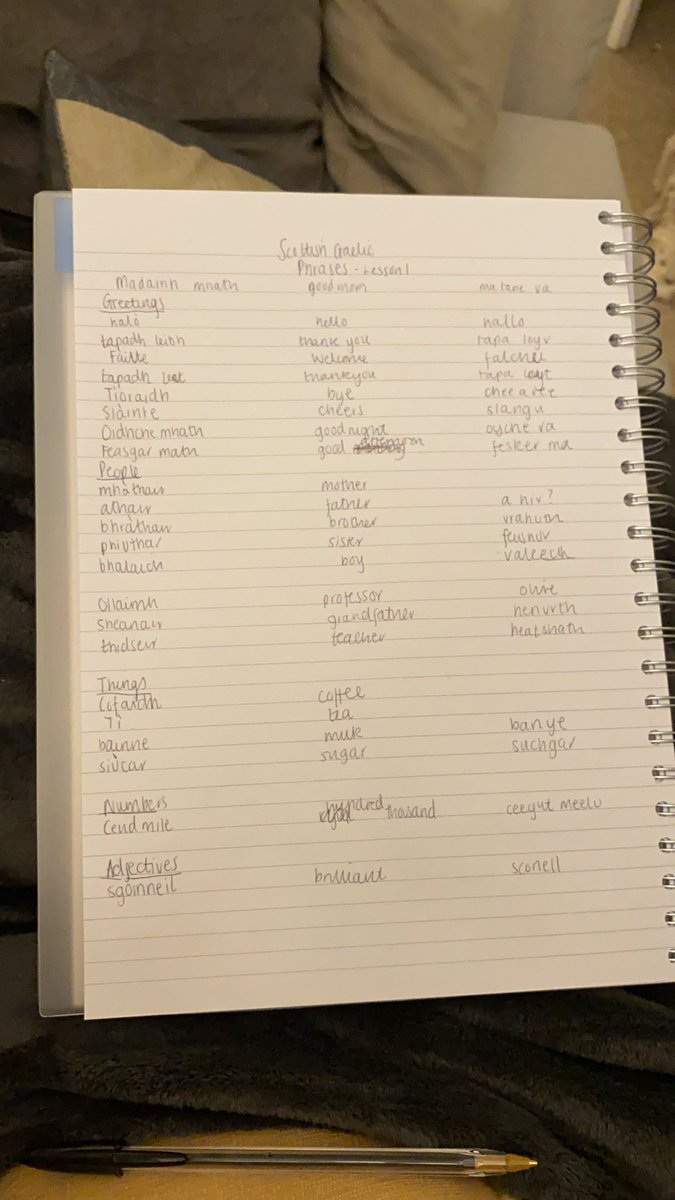 Scottish Gaelic
Phrases - Lesson 1
Madainn mhath good morn ma tane va
Greetings
halò hello hallo
tapadh leibh thank you tapa loyv
Fàilte Welcome falchu
tapadh leat thankyou tapa layt
Tìoraidh bye chee aree
Slàinte cheers slangu
Oidhche mhath goodnight oyche va
Feasgar math good afternoon fesker ma
People
mhàthair mother
athair father a hiv?
bhràthair brother vrahuth
phiuthar sister
bhalaich boy valeech
Ollaimh professor olive
sheanair grandfather henurth
thidseir teacher heatshath
Things
Cofaidh coffee
Tì tea
bainne milk banye
siùcar sugar suchgar
Numbers
Ceud mìle hundred thosand ceegut meelu
Adjectives
sgoinneil brilliant sconell